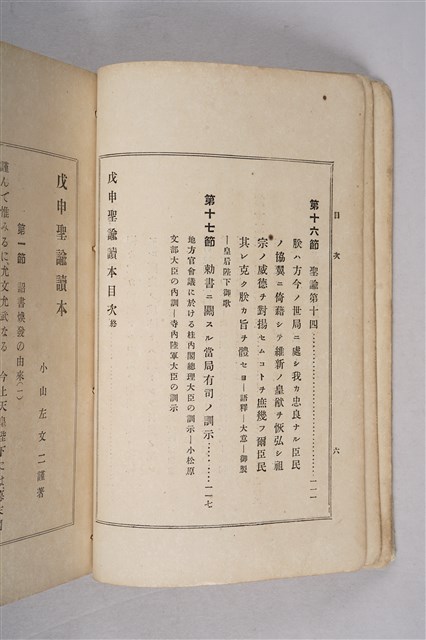 目次
六
第十六節 聖諭第十四………………………一一一
朕ハ方今ノ世局ニ處シ我カ忠良ナル臣民
ノ協翼ニ倚藉シテ維新ノ皇猷ヲ恢弘シ祖
宗ノ威德ヲ對揚セムコトヲ庶幾フ爾臣民
其レ克ク朕カ旨ヲ體セヨ―語釋―大意―御製
―皇后陛下御歌
第十七節 勅書ニ關スル當局有司ノ訓示………一一七
地方官會議に於ける桂內閣總理大臣の訓示―小松原
文部大臣の內訓―寺內陸軍大臣の訓示
戊申聖諭讀本目次 終
戊申聖諭讀本
小山左文二謹著
第一節 詔書煥發の由來(一)
謹んで惟みるに、允文允武なる 今上天皇陛下